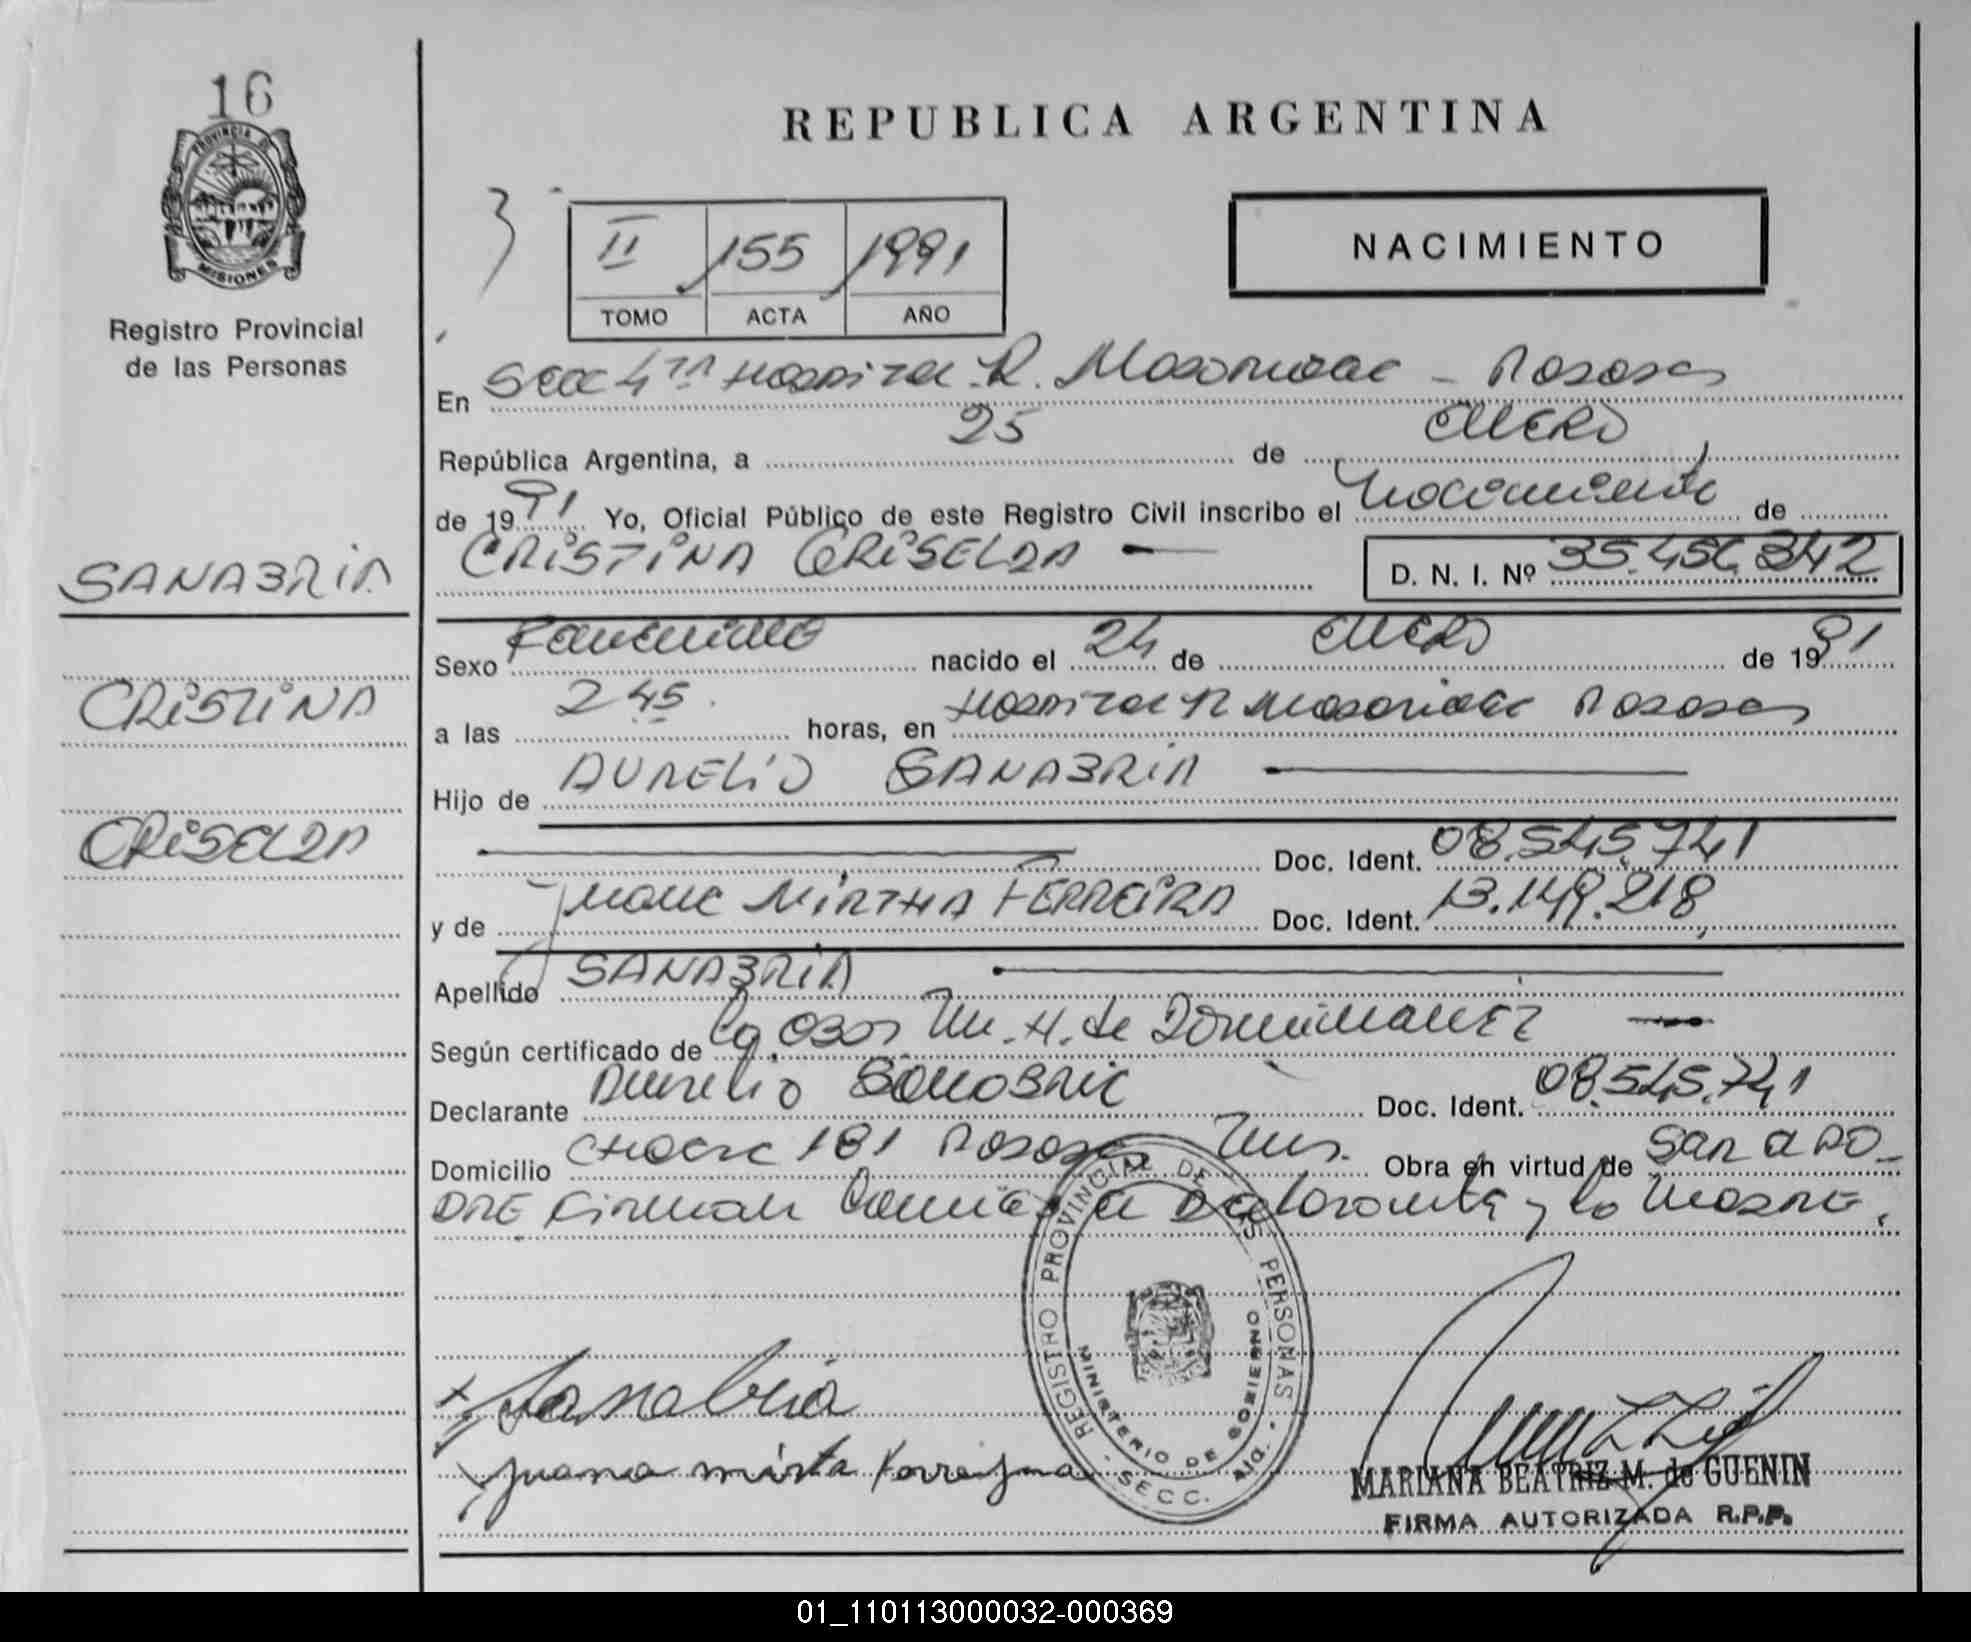 16
PROVINCIA DE
MISIONES
Registro Provincial
de las Personas
SANABRIA
CRISTINA
GRISELDA
REPUBLICA ARGENTINA
II 155 1991
TOMO ACTA AÑO
NACIMIENTO
En Secc 4ta Hospital R. Madariaga - Posadas
República Argentina, a 25 de ENERO
de 1991 Yo, Oficial Público de este Registro Civil inscribo el Nacimiento de
CRISTINA GRISELDA — D. N. I. Nº 35.456.342
Sexo Femenino nacido el 24 de ENERO de 1991
a las 2 45 horas, en Hospital R Madariaga Posadas
Hijo de AURELIO SANABRIA
Doc. Ident. 08.545.741
y de Juana MIRTHA FERREIRA Doc. Ident. 13.149.218
Apellido SANABRIA
Según certificado de M. H. de
Declarante Aurelio Sanabria Doc. Ident. 08.545.741
Domicilio 181 Posadas Mis. Obra en virtud de Ser el PA-
DRE Firman la Declarante y la Madre.
REGISTRO PROVINCIAL DE LAS PERSONAS
MINISTERIO DE GOBIERNO
SECC.
Sanabria
Juana mirta Ferreyra
MARIANA BEATRIZ M. de GUENIN
FIRMA AUTORIZADA R.P.P.
01_110113000032-000369